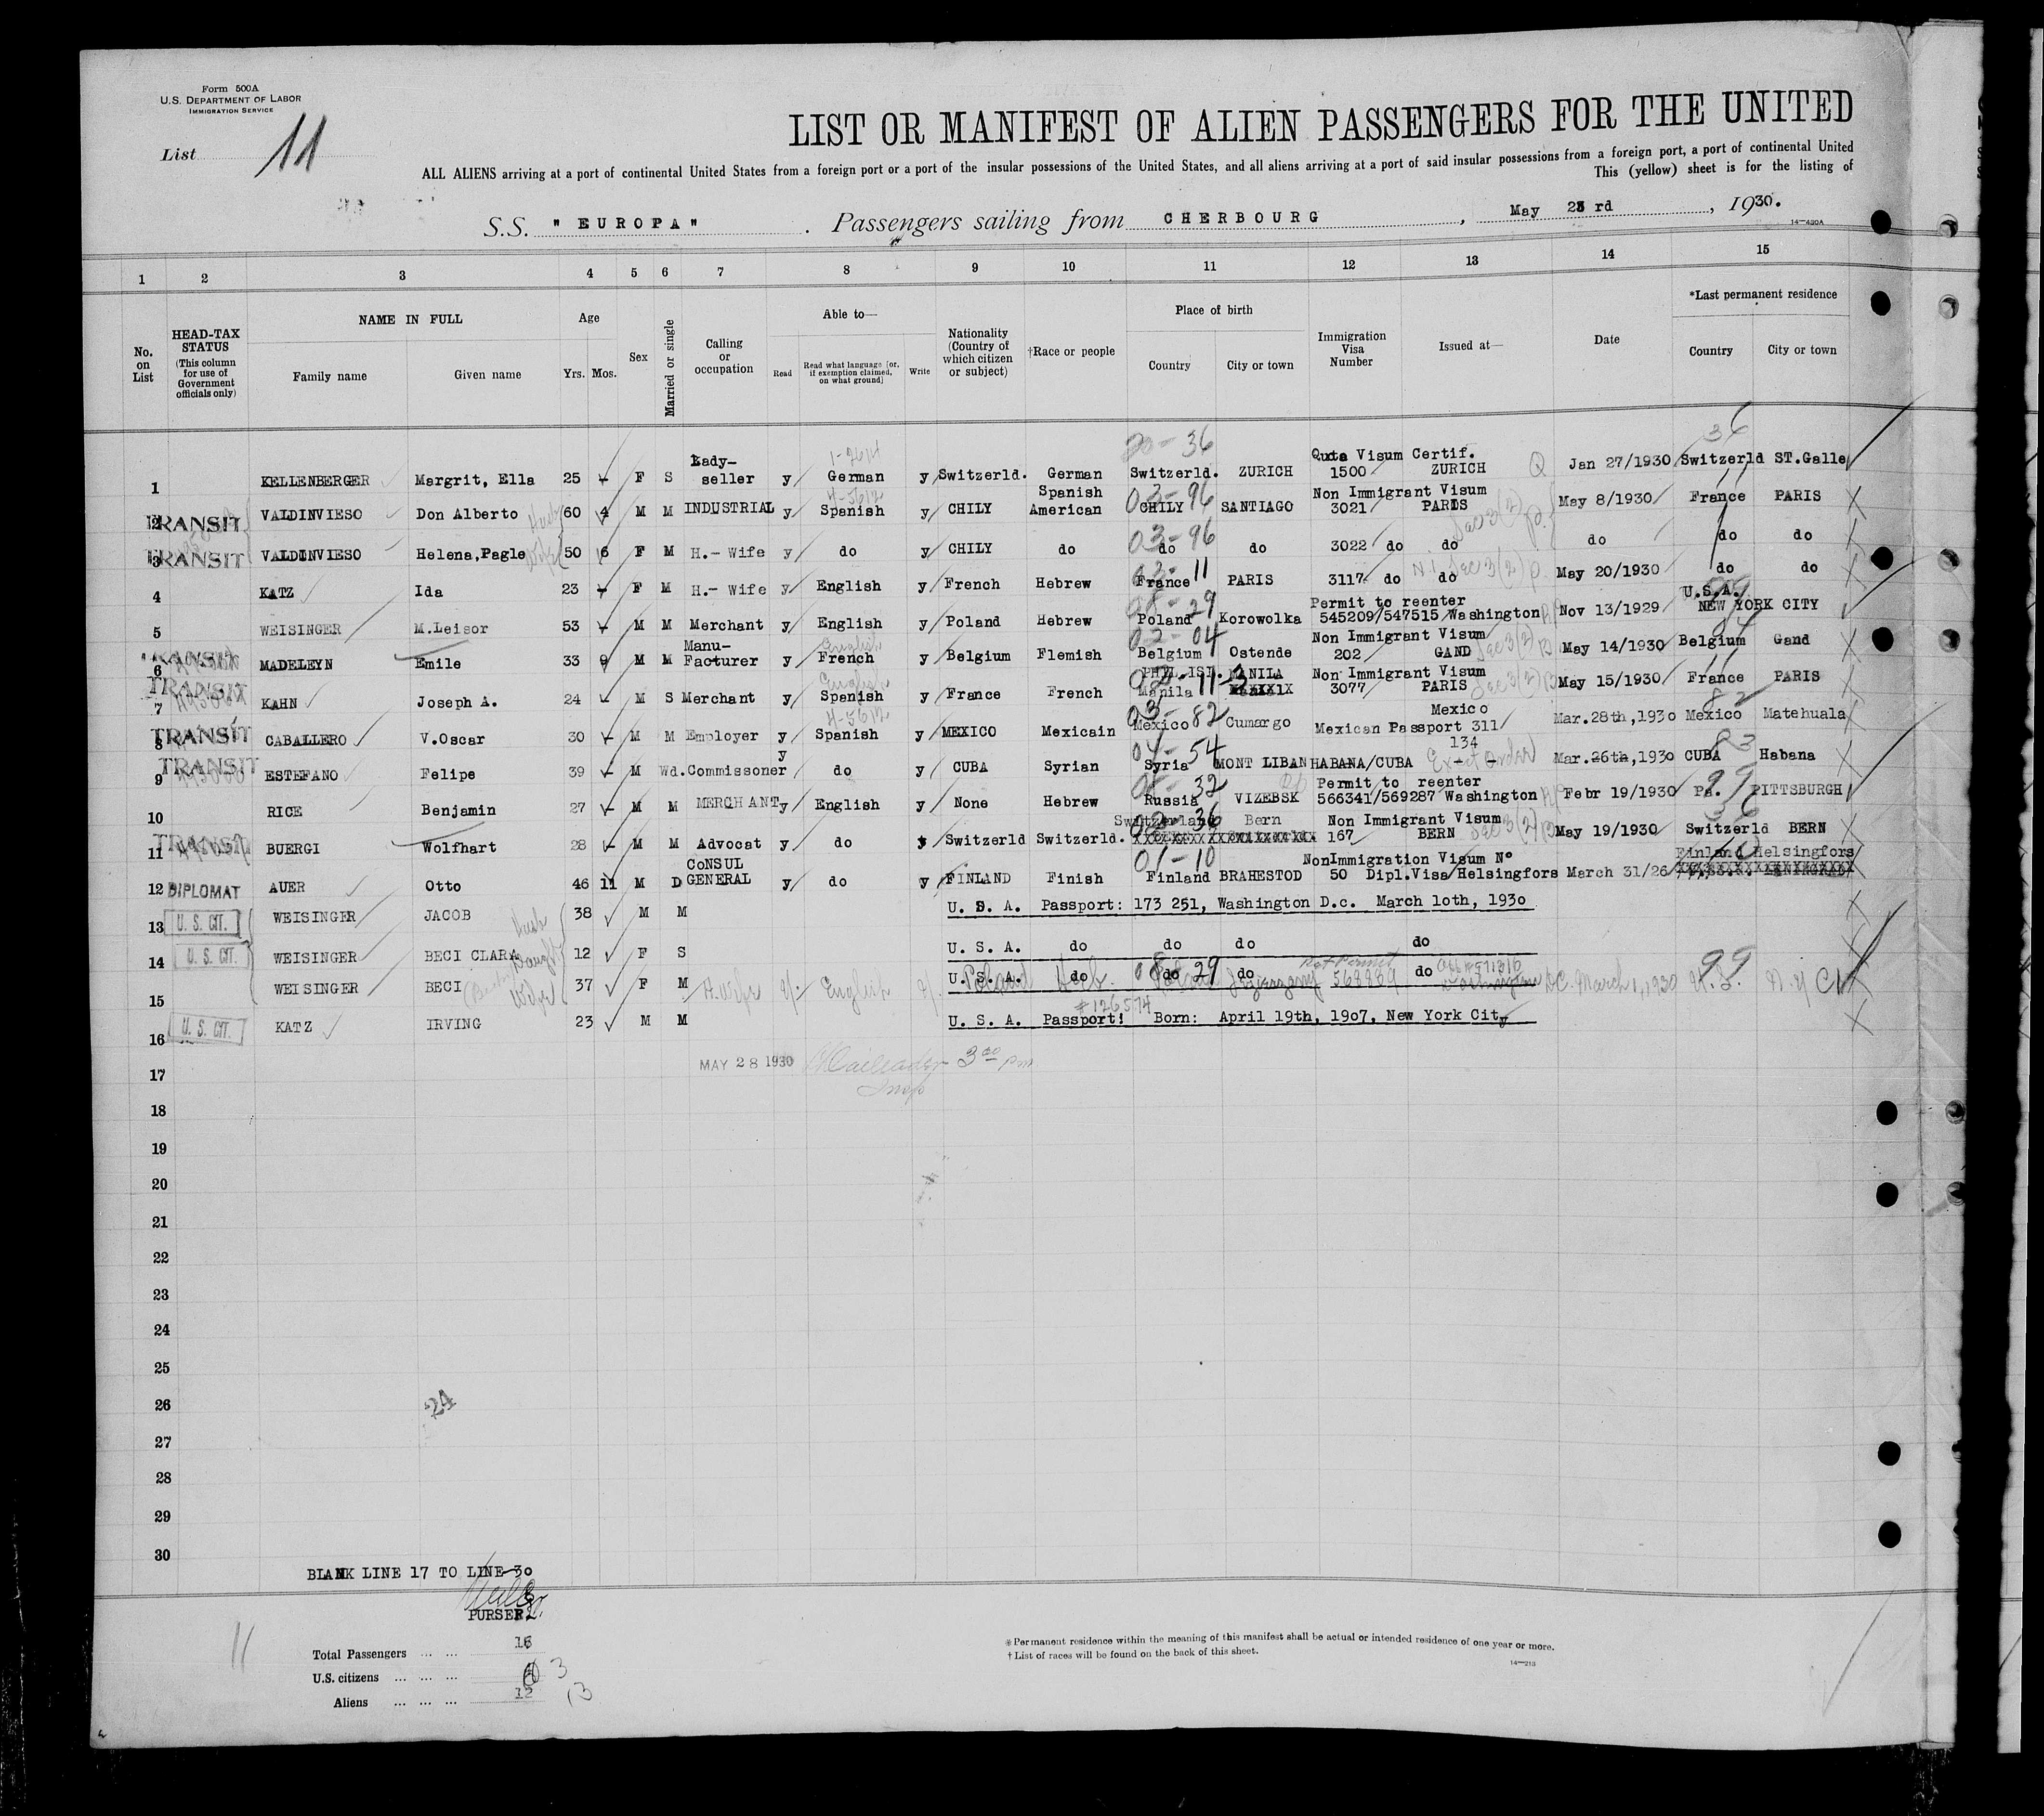 Form 500A
U.S. DEPARTMENT OF LABOR
IMMIGRATION SERVICE
List 11
LIST OR MANIFEST OF ALIEN PASSENGERS FOR THE UNITED
ALL ALIENS arriving at a port of continental United States from a foreign port or a port of the insular possessions of the United States, and all aliens arriving at a port of said insular possessions from a foreign port, a port of continental United
This (yellow) sheet is for the listing of
S.S. "EUROPA". Passengers sailing from CHERBOURG, May 23rd, 1930.
14-430A
1 2 3 4 5 6 7 8 9 10 11 12 13 14 15
No. on List
HEAD-TAX STATUS
(This column for use of Government officials only)
NAME IN FULL
Family name Given name
Age
Yrs. Mos.
Sex
Married or single
Calling or occupation
Able to—
Read Read what language [or, if exemption claimed, on what ground] Write
Nationality (Country of which citizen or subject)
†Race or people
Place of birth
Country City or town
Immigration Visa Number
Issued at—
Date
*Last permanent residence
Country City or town
1 KELLENBERGER Margrit, Ella 25 F S Lady-seller y German y Switzerld. German Switzerld. ZURICH Quota Visum Certif. 1500 ZURICH Q Jan 27/1930 Switzerld ST.Galle
2 TRANSIT VALDINVIESO Don Alberto 60 4 M M INDUSTRIAL y Spanish y CHILY Spanish American 03-96 CHILY SANTIAGO Non Immigrant Visum 3021 PARIS May 8/1930 France PARIS
3 TRANSIT VALDINVIESO Helena,Pagle 50 6 F M H.- Wife y do y CHILY do 03-96 do do 3022 do do do do do
4 KATZ Ida 23 F M H.- Wife y English y French Hebrew France 11 PARIS 3117 do do May 20/1930 do do
5 WEISINGER M.Leisor 53 M M Merchant y English y Poland Hebrew 08-29 Poland Korowolka Permit to reenter 545209/547515 Washington Nov 13/1929 U.S.A. NEW YORK CITY
6 TRANSIT MADELEYN Emile 33 9 M M Manu-Facturer y French English y Belgium Flemish 02-04 Belgium Ostende Non Immigrant Visum 202 GAND May 14/1930 Belgium Gand
7 TRANSIT KAHN Joseph A. 24 M S Merchant y Spanish English y France French PHIL.IST. Manila MANILA Non Immigrant Visum 3077 PARIS May 15/1930 France PARIS
8 TRANSIT CABALLERO V.Oscar 30 M M Employer y Spanish y MEXICO Mexicain 03-82 Mexico Cumargo Mexico Mexican Passport 311 Mar.28th,1930 Mexico Matehuala
9 TRANSIT ESTEFANO Felipe 39 M Wd. Commissoner y do y CUBA Syrian 04-54 Syria MONT LIBAN HABANA/CUBA 134 Mar.26th,1930 CUBA Habana
10 RICE Benjamin 27 M M MERCHANT y English y None Hebrew 32 Russia VIZEBSK Permit to reenter 566341/569287 Washington Febr 19/1930 Pa. PITTSBURGH
11 TRANSIT BUERGI Wolfhart 28 M M Advocat y do Switzerld Switzerld. Switzerland Bern Non Immigrant Visum 167 BERN May 19/1930 Switzerld BERN
12 DIPLOMAT AUER Otto 46 11 M D CONSUL GENERAL y do y FINLAND Finish 01-10 Finland BRAHESTOD NonImmigration Visum No 50 Dipl.Visa/Helsingfors March 31/26 Finland Helsingfors
13 U. S. CIT. WEISINGER JACOB 38 M M U. S. A. Passport: 173 251, Washington D.c. March 1oth, 1930
14 U. S. CIT. WEISINGER BECI CLARA 12 F S U. S. A. do do do do
15 WEISINGER BECI Wife 37 F M H. Wife y. English U. S. A. Poland do Heb. do 29 do 568889 do D.C. March 1, 1930 U.S. N.Y. C
16 U. S. CIT. KATZ IRVING 23 M M U. S. A. Passport! #126574 Born: April 19th, 1907, New York City
17 MAY 28 1930 3 00 pm
18
19
20
21
22
23
24
25
26
27
28
29
30
24
BLANK LINE 17 TO LINE 30
PURSER.
11
Total Passengers 16
U.S. citizens 3
Aliens 12 13
*Permanent residence within the meaning of this manifest shall be actual or intended residence of one year or more.
†List of races will be found on the back of this sheet.
14—213